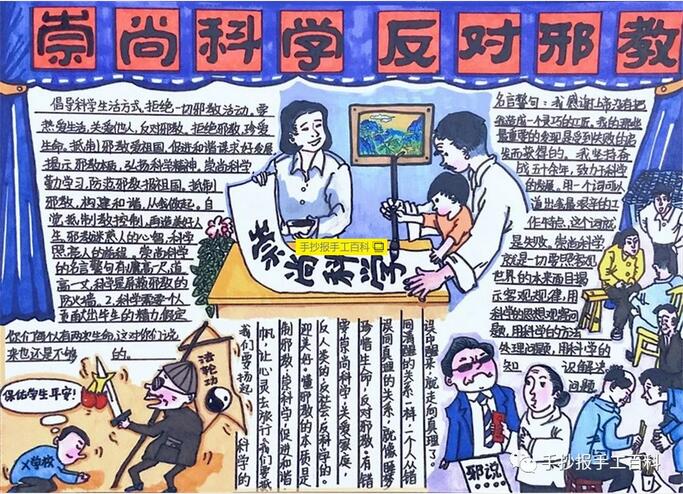 崇尚科学 反对邪教
倡导科学生活方式,拒绝一切邪教活动,要
热爱生活,关爱他人,反对邪教,拒绝邪教,珍爱
生命,抵制邪教爱祖国,促进和谐谋求好发展
揭示邪教本质,弘扬科学精神,崇尚科学
勤力学习,防范邪教报祖国,抵制
邪教,构建和谐,从我做起,自
觉抵制邪教控制,再铸美好人
生,邪教迷惑人的心智,科学
照亮人的前程,崇尚科学
的名言警句有魔高一尺,道
高一丈,科学是屏蔽邪教的
防火墙。2.科学需要一个
人重贡献出毕生的精力,假定
你们每个人有两次生命,这对你们说
来也还是不够的。
名言警句:我感谢上帝没有把
我造成一个灵巧的工匠。我的那些
最重要的发现是受到失败的启
发而获得的。我坚持奋
战五十余年,致力于科学
的发展,用一个词可以
道出我最艰辛的工
作特点,这个词就
是失败。崇尚科学
就是一切要照着现
世界的本来面目揭
示客观规律,用
科学的思想观察问
题,用科学的方法
处理问题,用科学的
知识解决
问题
崇尚科学
手抄报手工百科
误中醒来,就走向真理了。
间清醒的关系一样,一个人从错
误同真理的关系,就像睡梦
珍惜生命,反对邪教。有错
要崇尚科学,关爱家庭,
反人类的,反社会,反科学的。
迎美好。懂邪教的本质是
制邪教,崇科学,促进和谐
帆,让心灵去旅行,我们要抵
我们要扬起科学的
保佑学生平安!
X学校
法轮功
邪说
手抄报手工百科